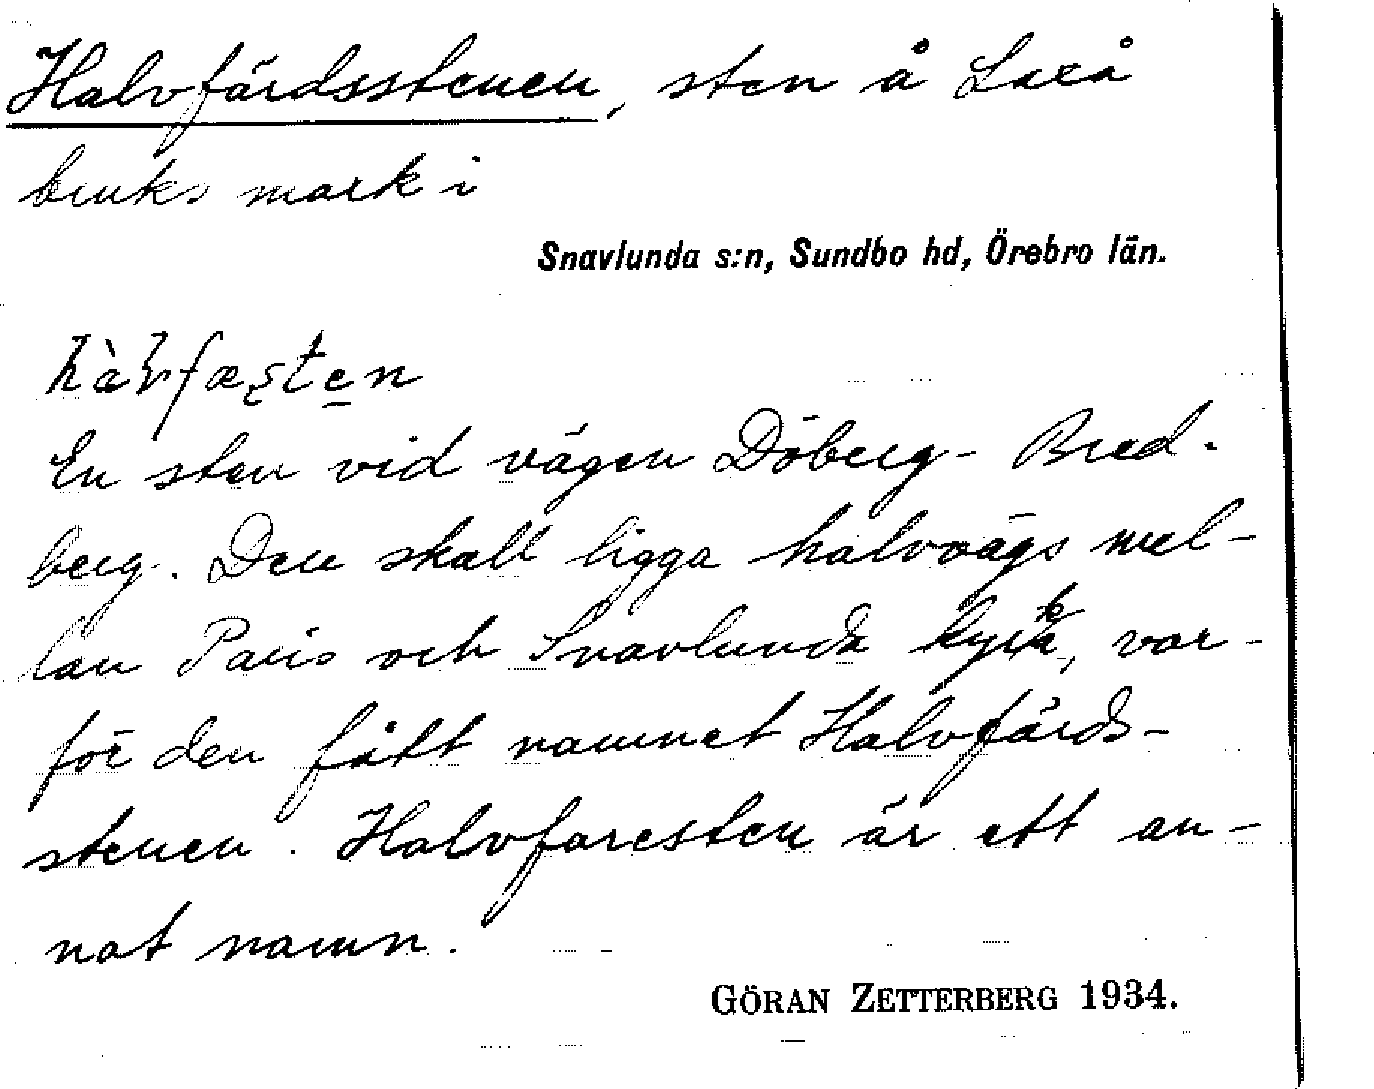 Halvfärdsstenen, sten å Laxå
bruks mark i
Snavlunda s:n, Sundbo hd, Örebro län.
En sten vid vägen Döberg - Bred-
berg. Den skall ligga halvvägs mel-
lan Paris och Snavlunda kyrka, var-
för den fått namnet Halvfärds-
stenen. Halvfaresten är ett an-
nat namn.
GÖRAN ZETTERBERG 1934.